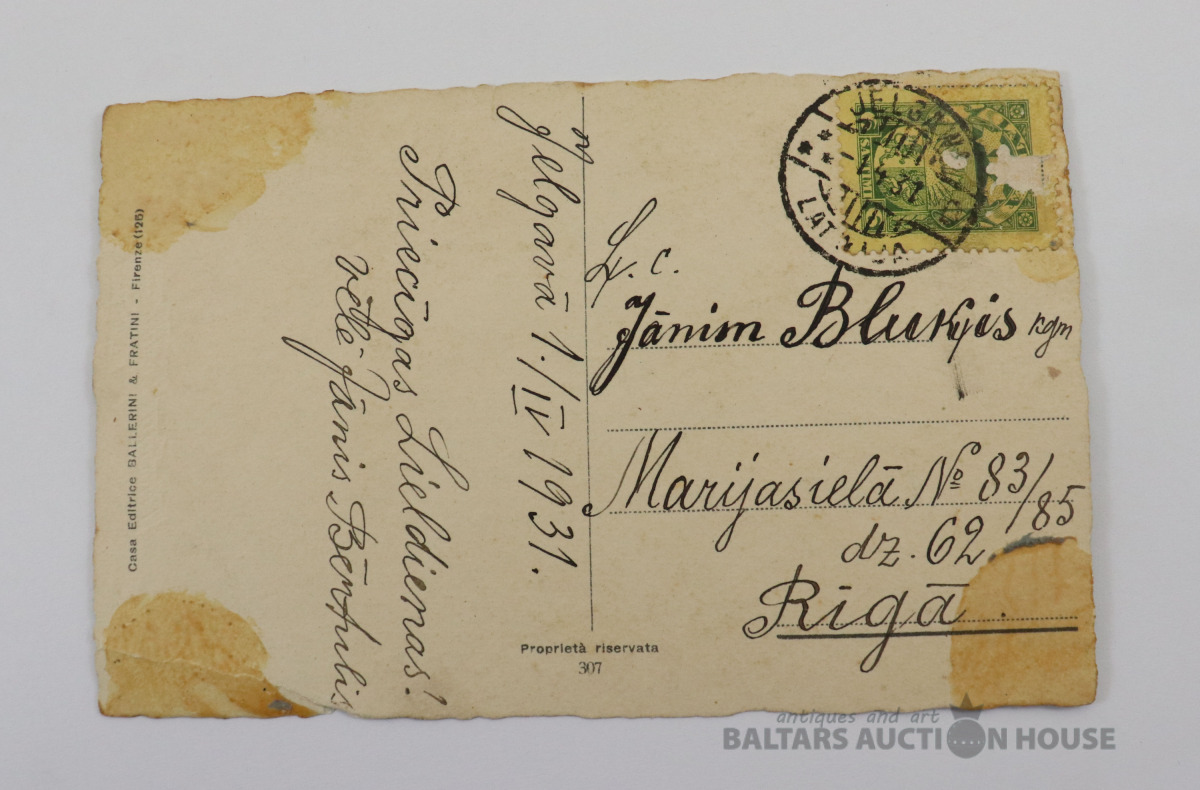 Jelgavā 1./IV 1931.
Priecīgas Lieldienas!
vēlē Jānis Bērtulis
L. c.
Jānim Bluķis kgm
Marijasielā № 83/85
dz. 62
Rīgā.
Casa Editrice BALLERINI & FRATINI - Firenze (125)
Proprietà riservata
307
JELGAVA
31
LATVIJA
antiques and art
BALTARS AUCTION HOUSE